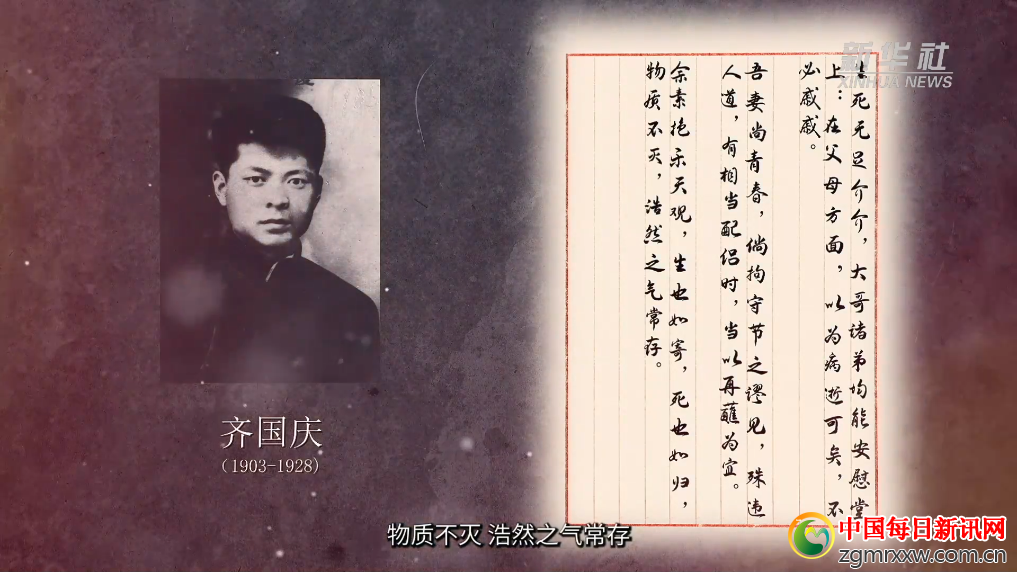 新华社
XINHUA NEWS
死无足介介，大哥诸弟均能安慰堂
上：在父母方面，以为病逝可矣，不
必戚戚。
吾妻尚青春，倘拘守节之谬见，殊违
人道，有相当配侣时，当以再醮为宜。
余素抱乐天观，生也如寄，死也如归，
物质不灭，浩然之气常存。
齐国庆
（1903-1928）
物质不灭 浩然之气常存
中国每日新讯网
zgmrxxw.com.cn